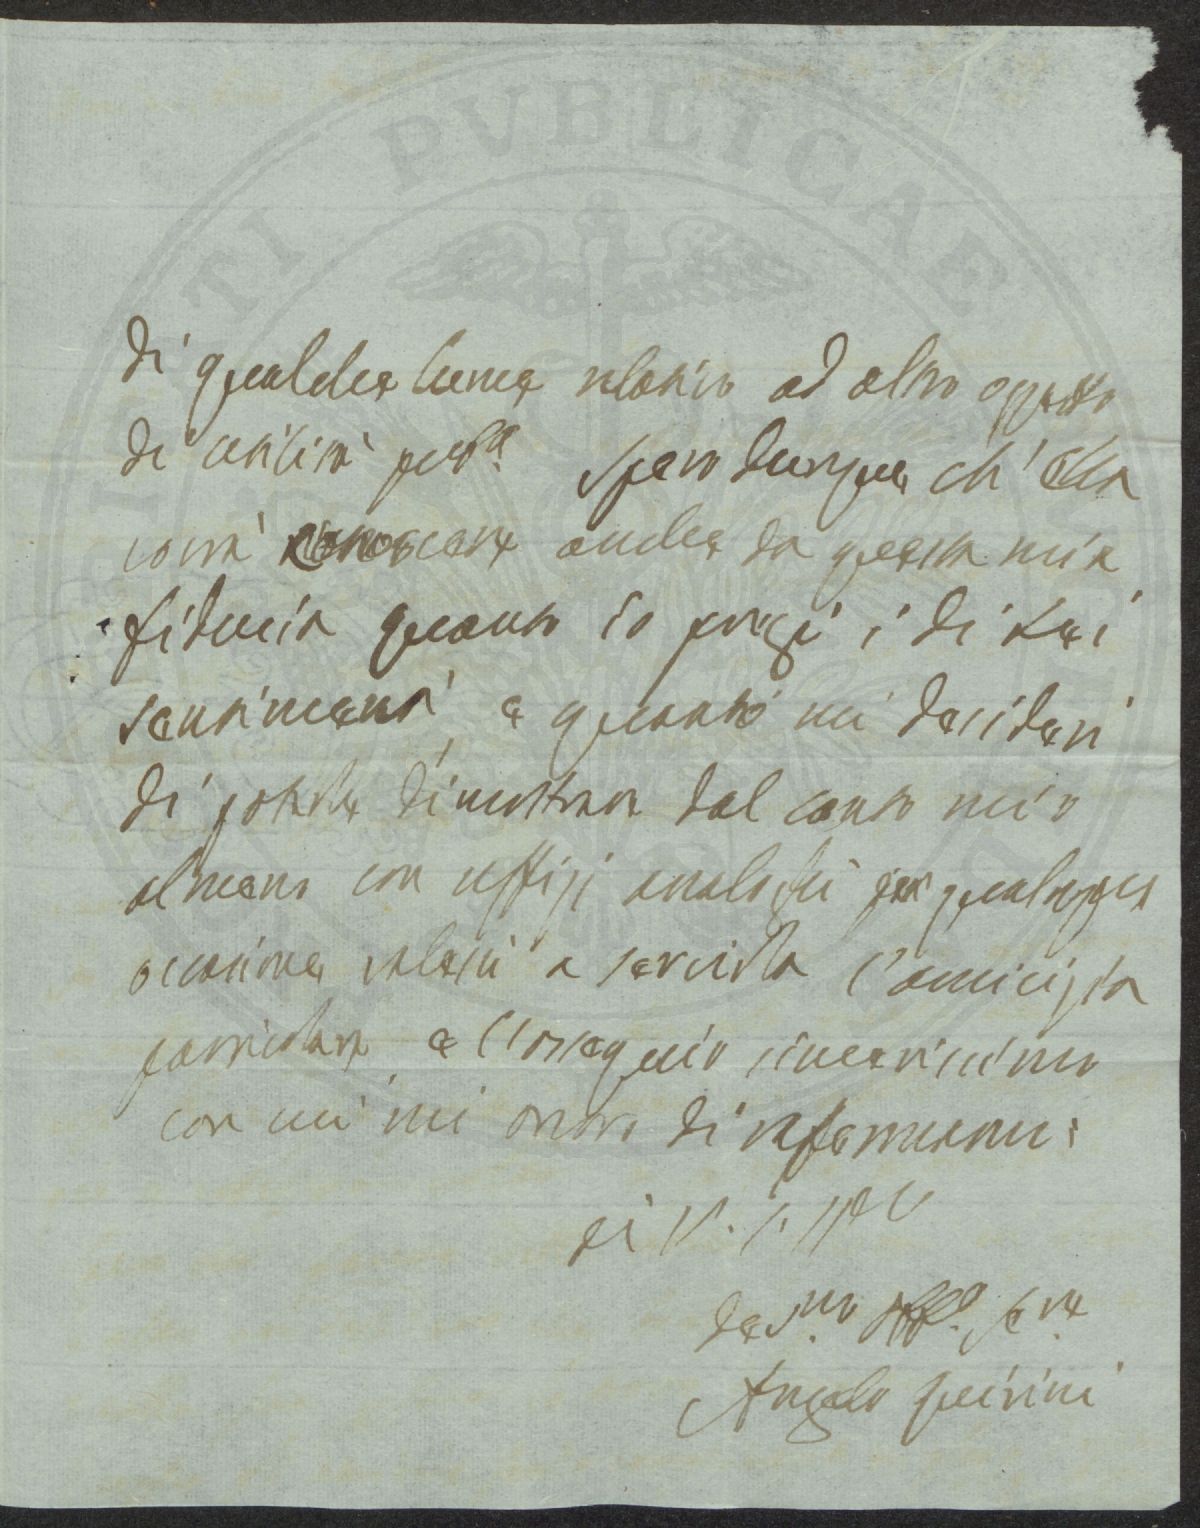 PVBLICAE
di qualche lume relativo ad altro oggetto
di utilità pub.a Spero dunque ch'ella
vorrà riconoscere anche da questa mia
fiducia quanto io pregi i di Lei
sentimenti, e quanto mi desideri
di poterle dimostrare dal canto mio
almeno con uffizj analoghi per qualunque
occasione valessi a servirla l'amicizia
particolare, e l'ossequio sincerissimo
con cui mi onoro di raffermarmi:
di V. S. Ill
Angelo Quirini